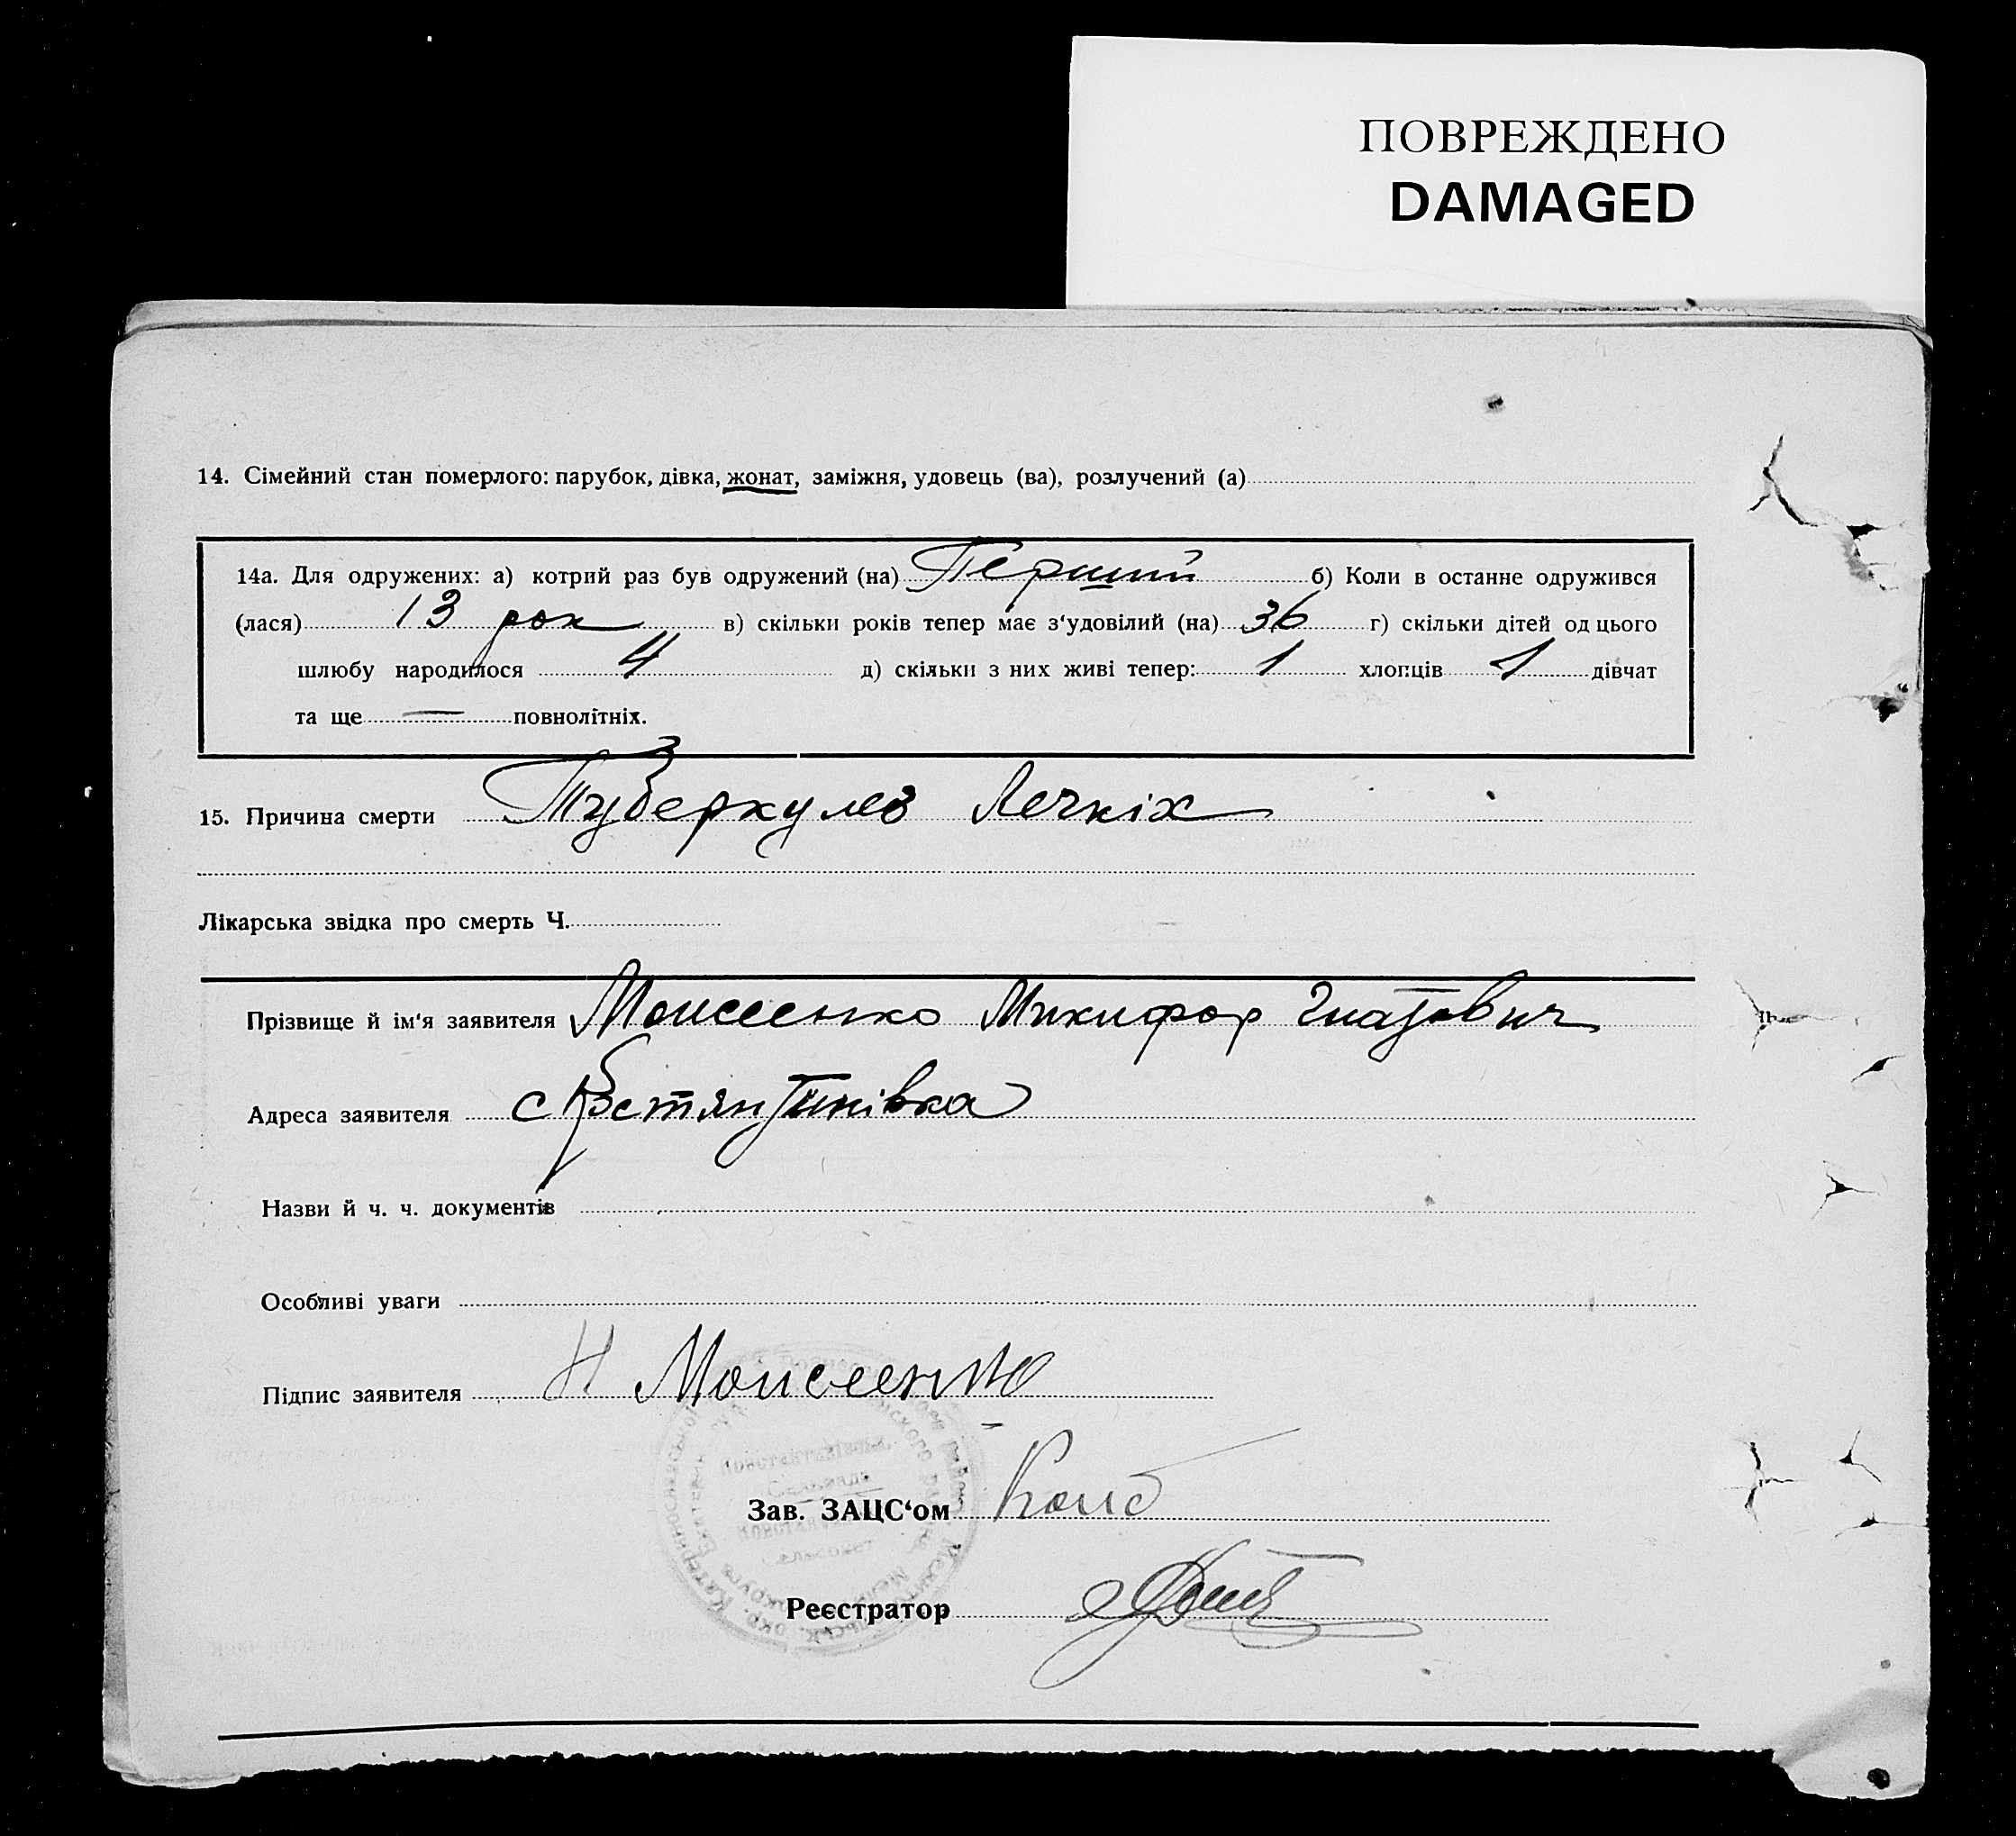 ПОВРЕЖДЕНО
DAMAGED
14. Сімейний стан померлого: парубок, дівка, жонат, заміжня, удовець (ва), розлучений (а)
14а. Для одружених: а) котрий раз був одружений (на) Перший б) Коли в останне одружився
(лася) 13 рок в) скільки років тепер має з‘удовілий (на) 36 г) скільки дітей од цього
шлюбу народилося 4 д) скільки з них живі тепер: 1 хлопців 1 дівчат
та ще — повнолітніх.
15. Причина смерти Туберкулез Легкіх
Лікарська звідка про смерть Ч.
Прізвище й ім‘я заявителя Моисеенко Микифор Гнатович
Адреса заявителя с Костянтинівка
Назви й ч. ч. документів
Особливі уваги
Підпис заявителя Н Моисеенко
Зав. ЗАЦС‘ом
Реєстратор